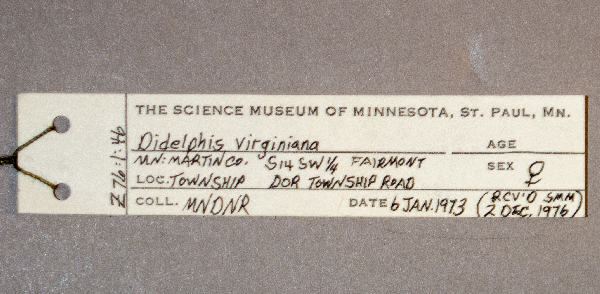 THE SCIENCE MUSEUM OF MINNESOTA, ST. PAUL, MN.
Didelphis virginiana AGE
MN: MARTIN CO. S14 SW 1/4 FAIRMONT SEX ♀
LOC. TOWNSHIP DOR TOWNSHIP ROAD
COLL. MNDNR DATE 6 JAN. 1973 (RCV'D SMM
2 DEC, 1976)
Z76:1:46